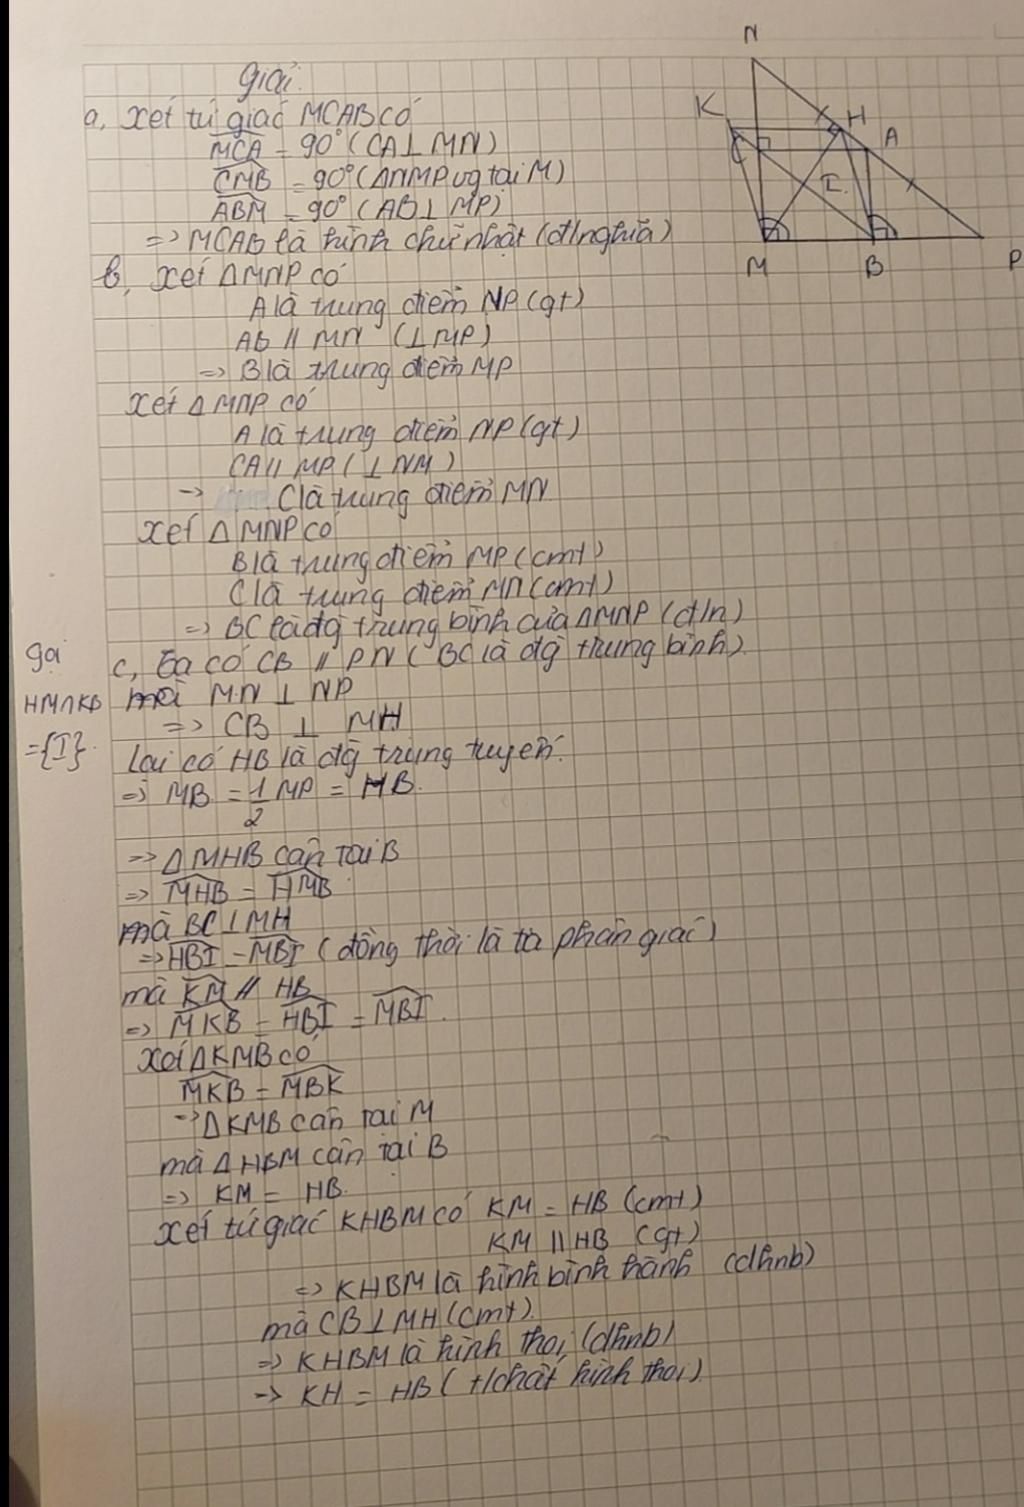 Giải.
a, Xét tứ giác MCAB có
MCA = 90° (CA⊥MN)
CMB = 90° (ΔNMP vg tại M)
ABM = 90° (AB⊥MP)
=> MCAB là hình chữ nhật (đ/nghĩa)
b, Xét ΔMNP có
A là trung điểm NP (gt)
AB // MN (⊥MP)
=> B là trung điểm MP
Xét ΔMNP có
A là trung điểm NP (gt)
CA // MP (⊥NM)
=> C là trung điểm MN
Xét ΔMNP có
B là trung điểm MP (cmt)
C là trung điểm MN (cmt)
=> BC là đg trung bình của ΔMNP (đ/n)
c, Ta có CB // PN (BC là đg trung bình)
gọi
HM∩KB
={I}.
mà MN ⊥ NP
=> CB ⊥ MH
Lại có HB là đg trung tuyến.
=> MB = 1/2 MP = HB.
=> ΔMHB cân tại B
=> MHB = HMB
mà BC⊥MH
=> HBI = MBI (đồng thời là tia phân giác)
mà KM // HB
=> MKB = HBI = MBI.
Xét ΔKMB có
MKB = MBK
=> ΔKMB cân tại M
mà ΔHBM cân tại B
=> KM = HB.
Xét tứ giác KHBM có KM = HB (cmt)
KM // HB (gt)
=> KHBM là hình bình hành (dhnb)
mà CB⊥MH (cmt)
=> KHBM là hình thoi (dhnb)
=> KH = HB (t/chất hình thoi)
N
K
H
A
C
I
M
B
P